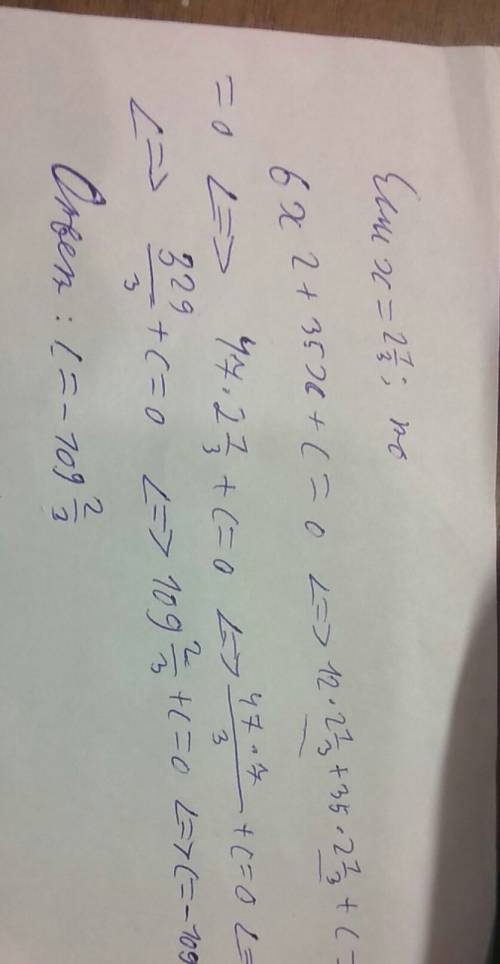 Если x = 2 1/3; то
6x2 + 35x + C = 0 <=> 12 · 2 1/3 + 35 · 2 1/3 + C =
= 0 <=> 47 · 2 1/3 + C = 0 <=> 47·7/3 + C = 0 <=
<=> 329/3 + C = 0 <=> 109 2/3 + C = 0 <=> C = -109
Ответ: C = -109 2/3